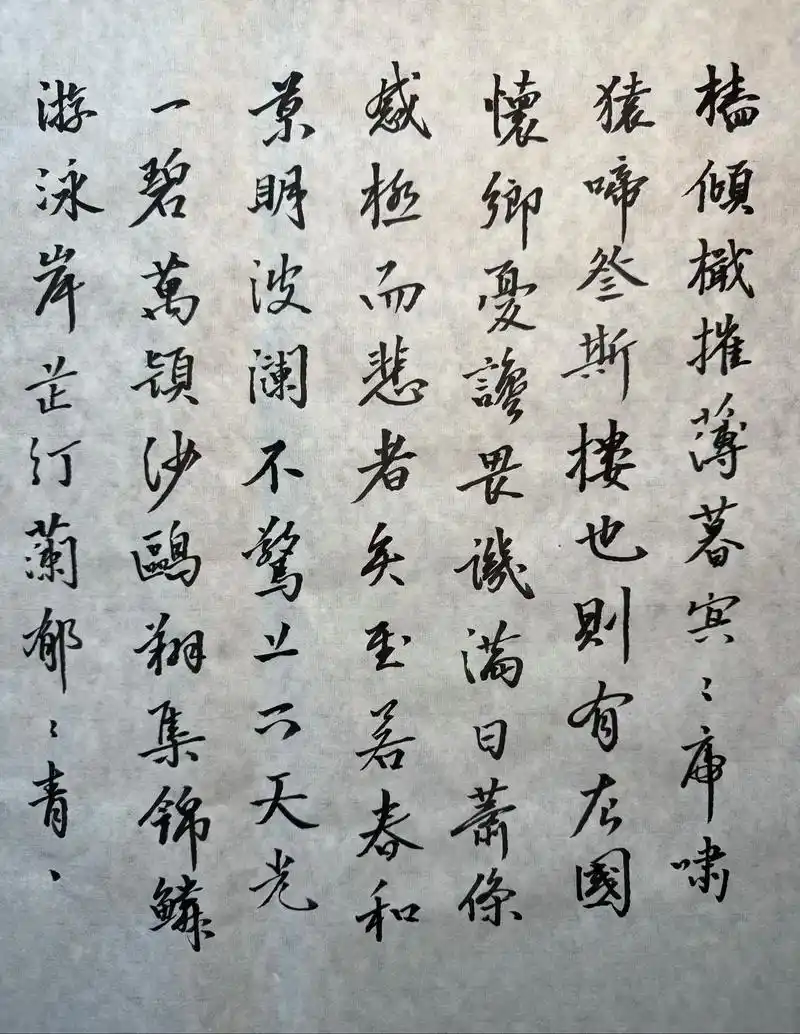 檣傾檝摧薄暮冥〻虎嘯
猿啼登斯樓也則有去國
懷鄉憂讒畏譏滿目蕭條
感極而悲者矣至若春和
景明波瀾不驚上下天光
一碧萬頃沙鷗翔集錦鱗
游泳岸芷汀蘭郁〻青〻